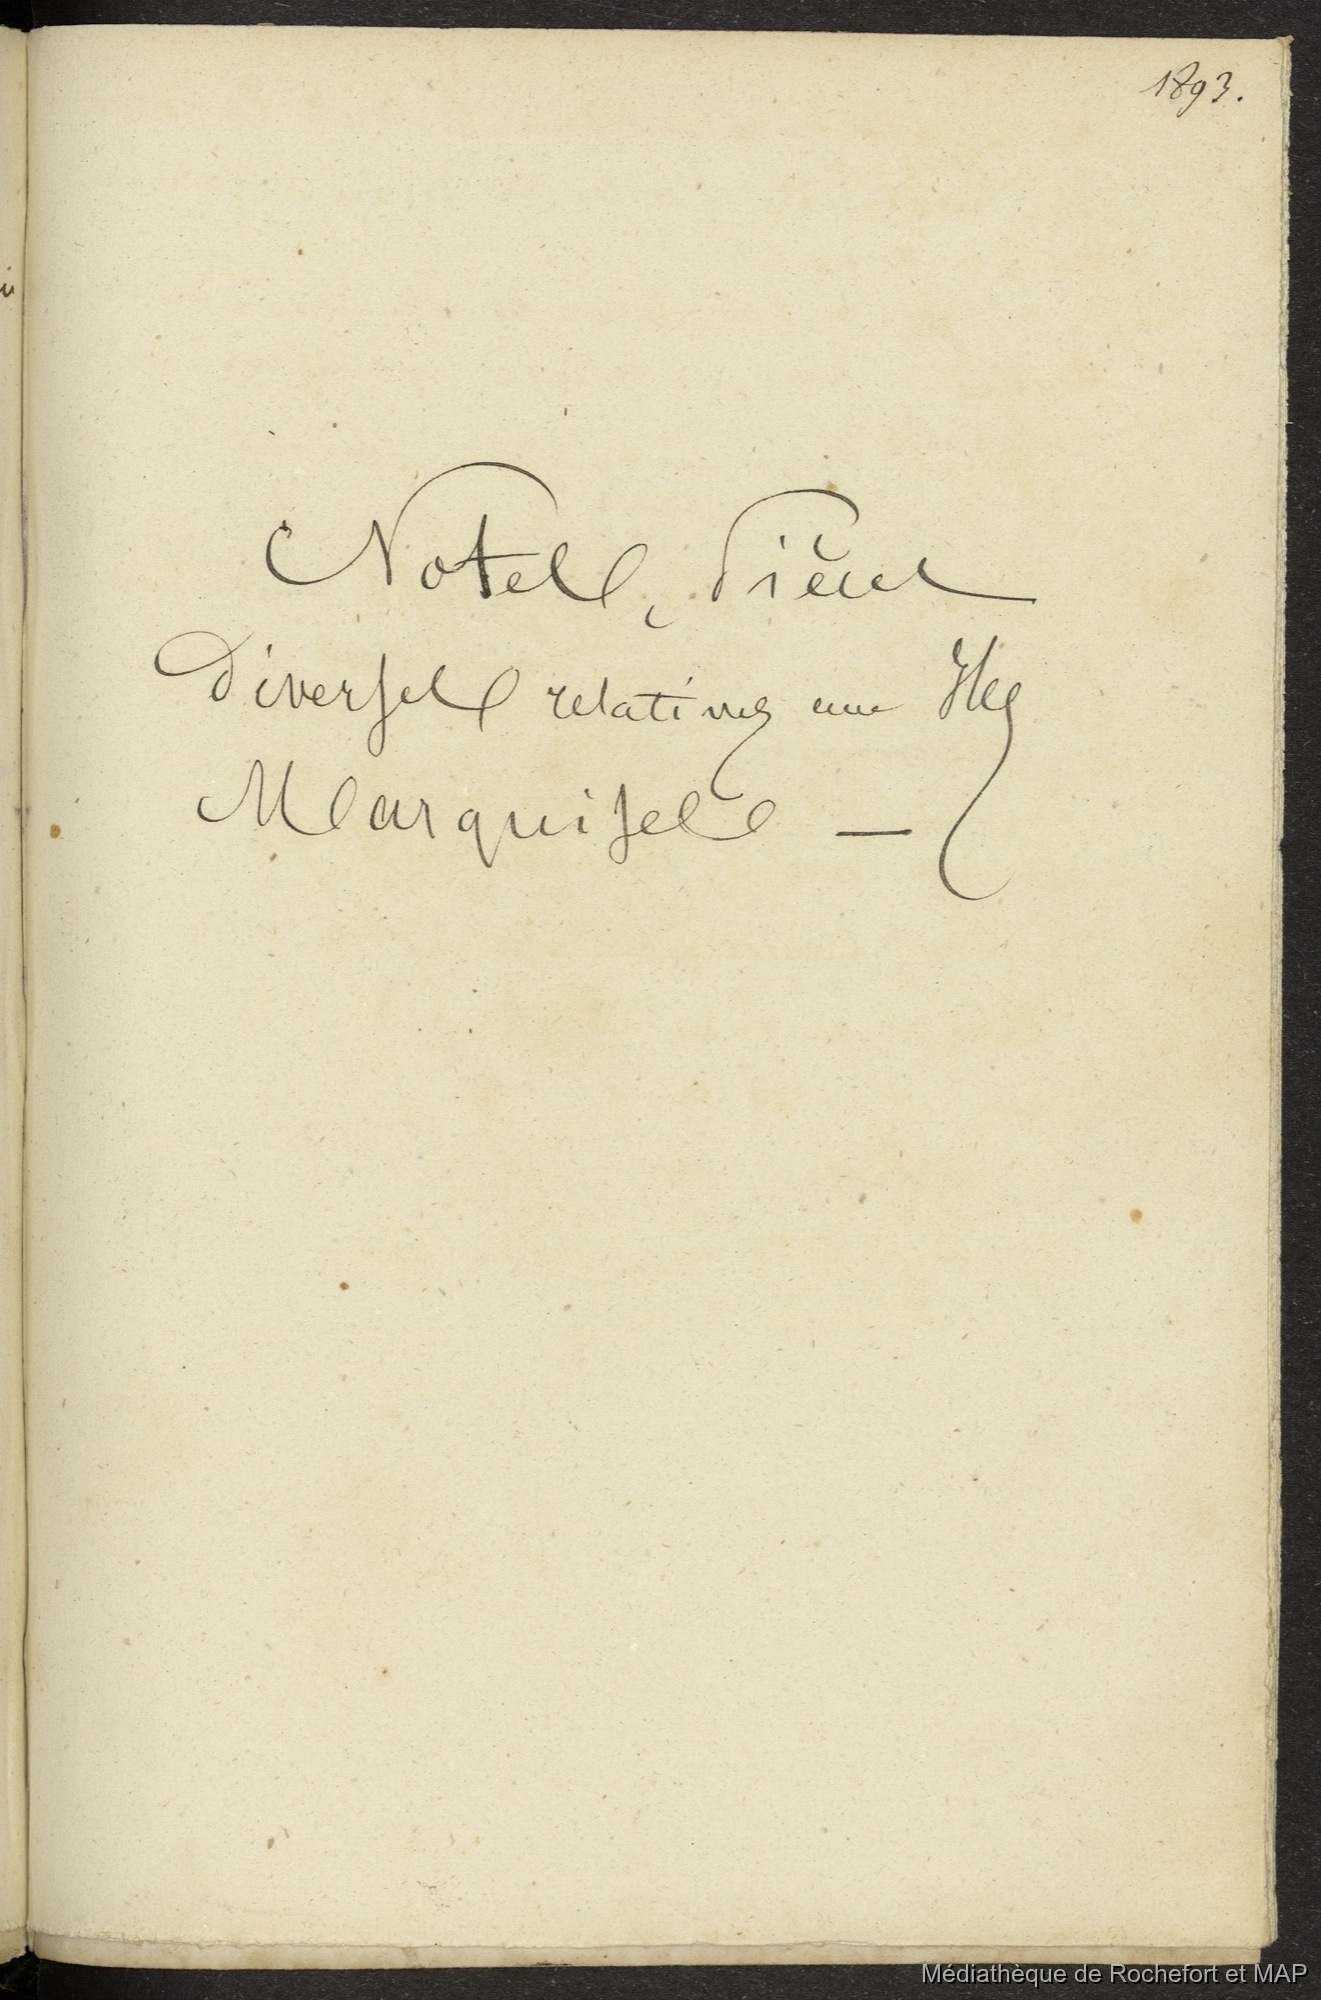 1893.
Notes, Pièces
diverses relatives aux Iles
Marquises —
Médiathèque de Rochefort et MAP